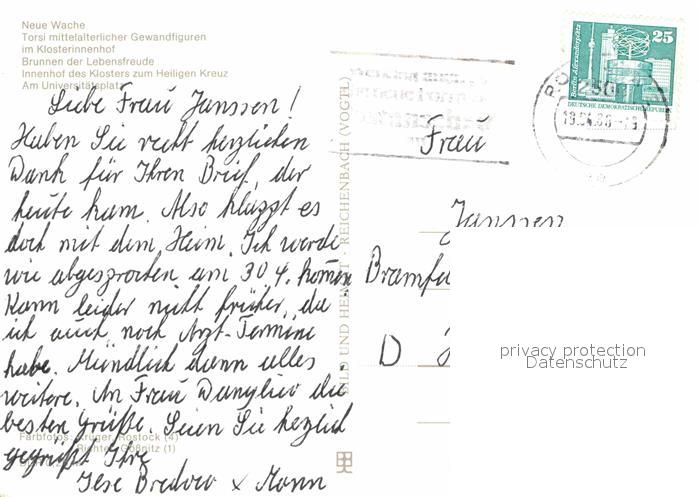 Neue Wache
Torsi mittelalterlicher Gewandfiguren
im Klosterinnenhof
Brunnen der Lebensfreude
Innenhof des Klosters zum Heiligen Kreuz
Am Universitätsplatz
Liebe Frau Janssen!
Haben Sie recht herzlichen
Dank für Ihren Brief, der
heute kam. Also klappt es
doch mit dem Heim. Ich werde
wie abgesprochen am 30.4. kommen
Kann leider nicht früher, da
ich auch noch Arzt-Termine
habe. Mündlich dann alles
weitere. An Frau die
besten Grüße. Seien Sie herzlich
gegrüßt Ihre
Ilse Bredow + Mann
Farbfotos: Krüger, Rostock (4)
Richter, Gößnitz (1)
BILD UND HEIMAT · REICHENBACH (VOGTL)
25
Berlin, Alexanderplatz
DEUTSCHE DEMOKRATISCHE REPUBLIK
RO
250
18.04.86
Frau
Janssen
Bramfe
D
privacy protection
Datenschutz